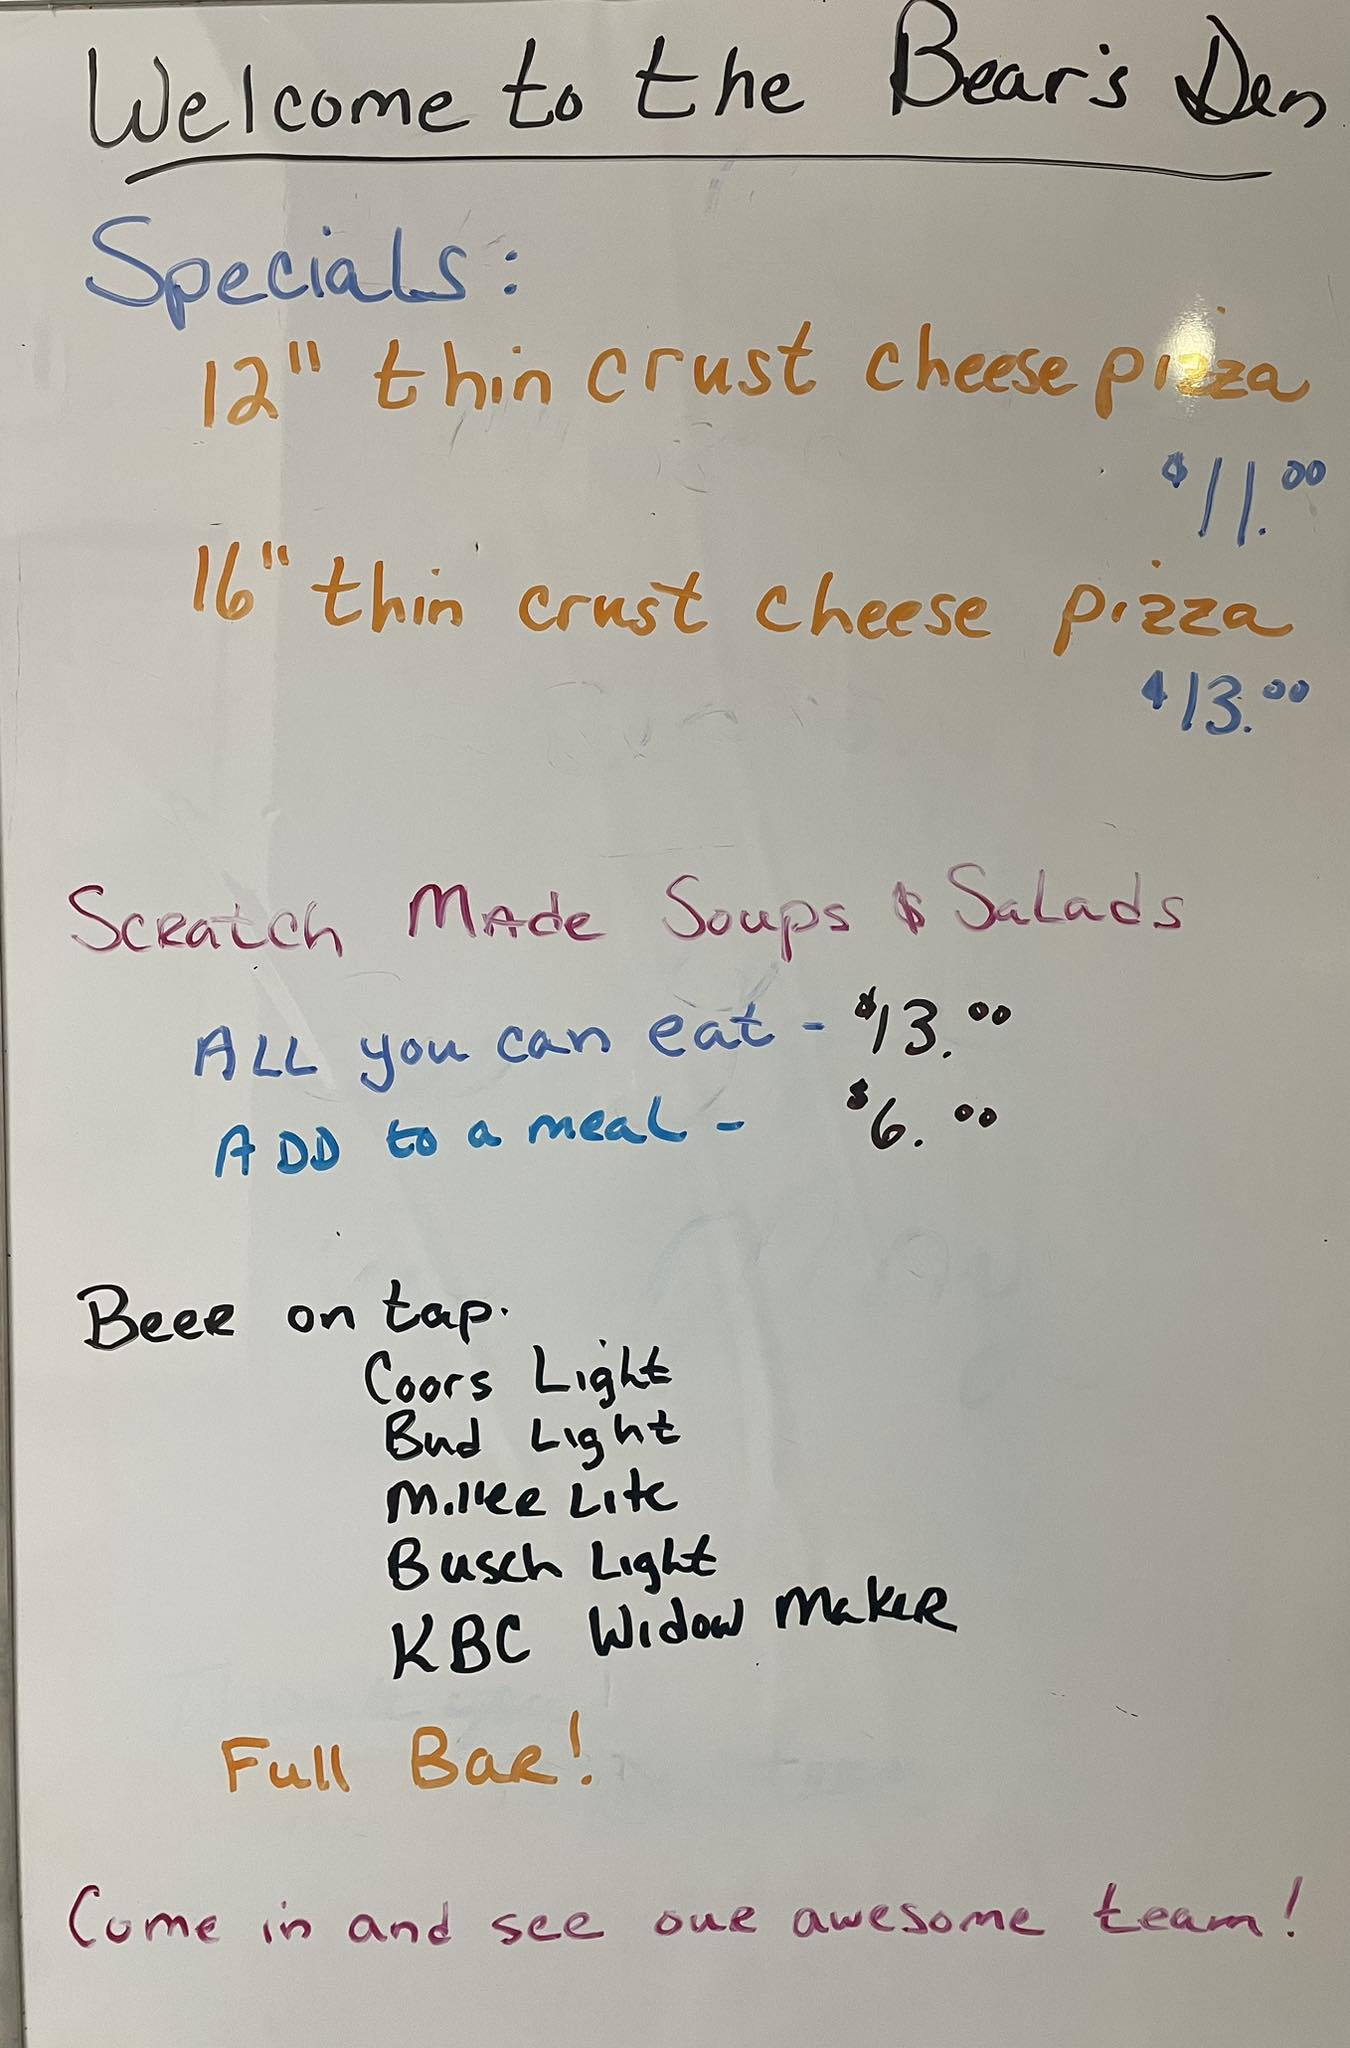 Welcome to the Bear's Den
Specials:
12" thin crust cheese pizza
$11.00
16" thin crust cheese pizza
$13.00
Scratch Made Soups & Salads
ALL you can eat - $13.00
ADD to a meal - $6.00
Beer on tap.
Coors Light
Bud Light
Miller Lite
Busch Light
KBC Widow Maker
Full Bar!
Come in and see our awesome team!